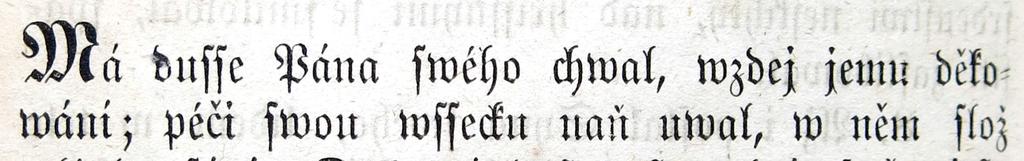 Má dusse Pána swého chwal, wzdej jemu děko-
wáni; péči swou wssecku naň uwal, w něm slož